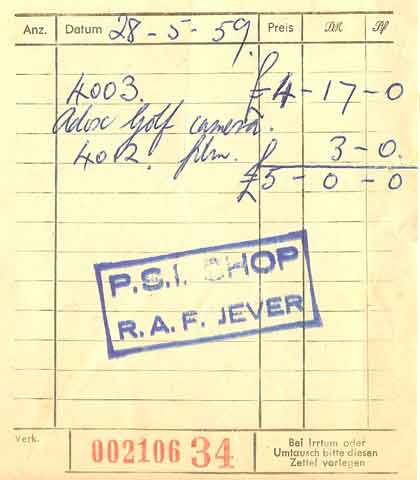 Anz. Datum 28-5-59. Preis DM Pf
4003. £4-17-0
Adox Golf camera.
4012. film. £ 3-0.
£5-0-0
P.S.I. SHOP
R.A.F. JEVER
Verk. 002106 34 Bei Irrtum oder
Umtausch bitte diesen
Zettel vorlegen